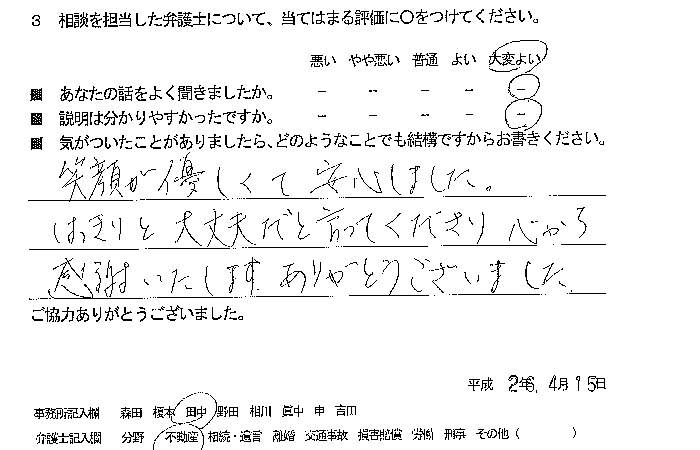 3 相談を担当した弁護士について、当てはまる評価に○をつけてください。
悪い やや悪い 普通 よい 大変よい
■ あなたの話をよく聞きましたか。 － － － － －
■ 説明は分かりやすかったですか。 － － － － －
■ 気がついたことがありましたら、どのようなことでも結構ですからお書きください。
笑顔が優しくて安心しました。
はっきりと大丈夫だと言ってくださり心から
感謝いたします。ありがとうございました。
ご協力ありがとうございました。
平成 26.4月15日
事務所記入欄 森田 榎本 田中 野田 相川 眞中 申 吉田
弁護士記入欄 分野 不動産 相続・遺言 離婚 交通事故 損害賠償 労働 刑事 その他（ ）